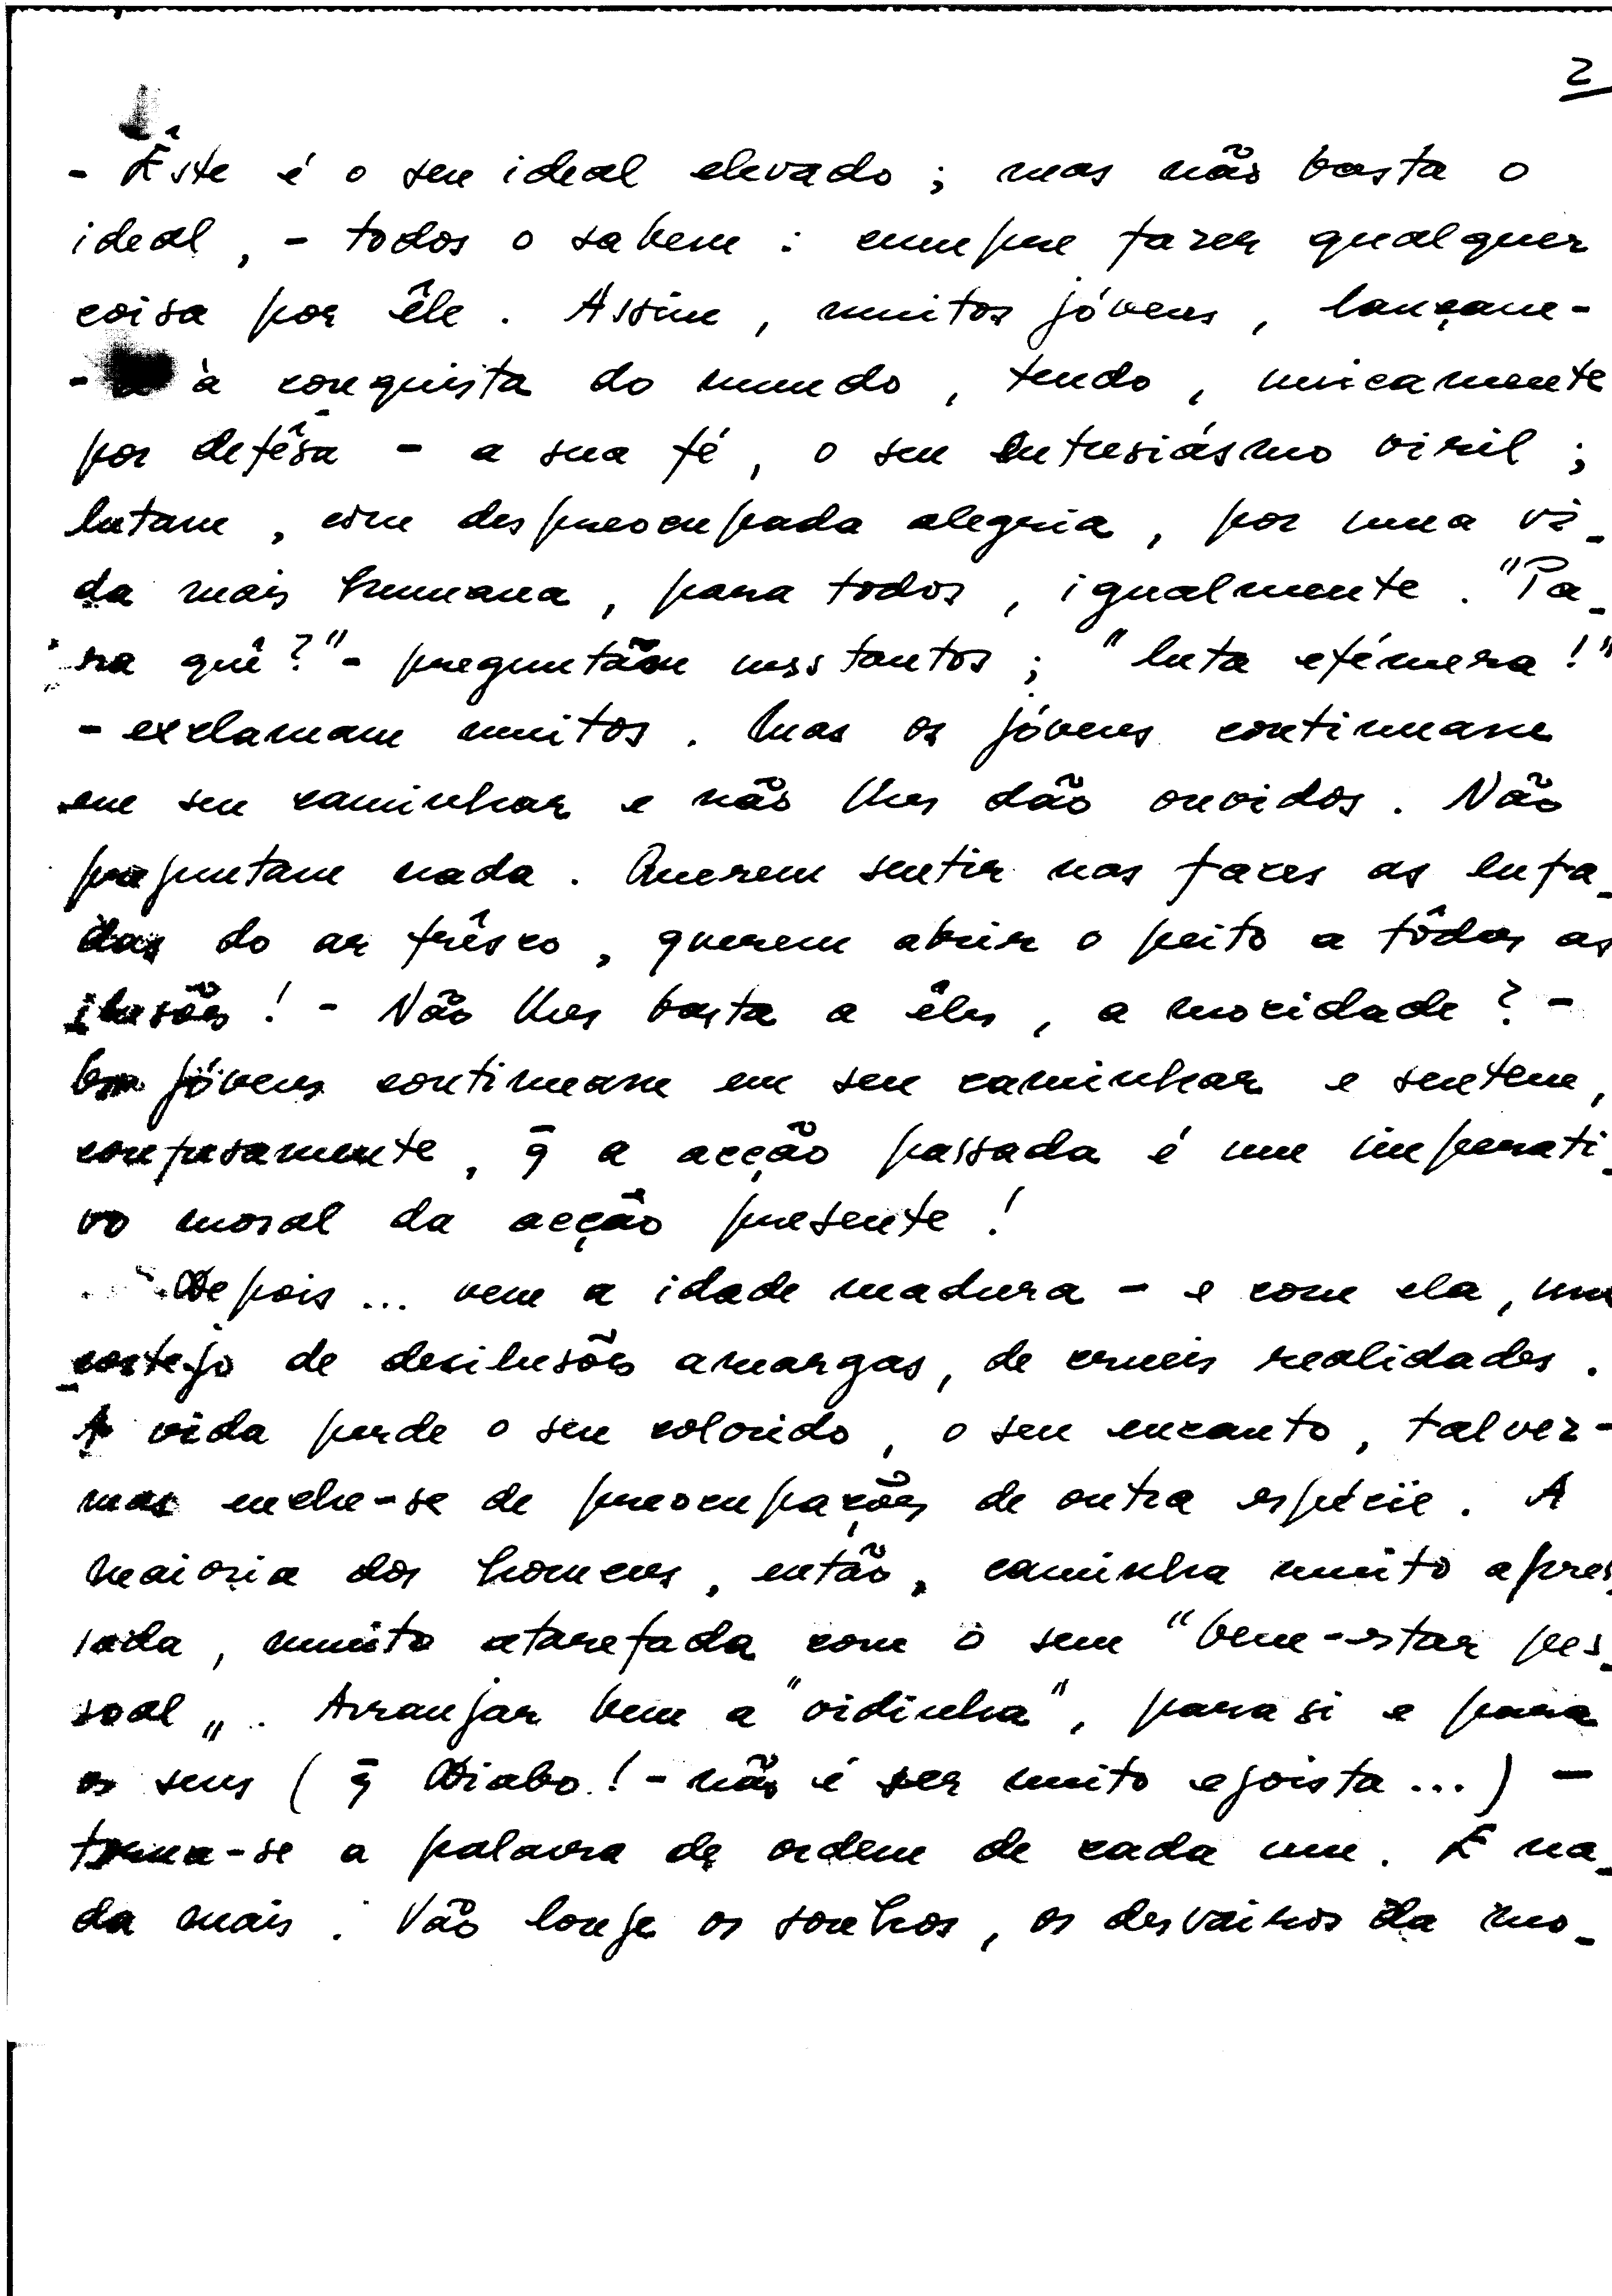 2
- Êste é o seu ideal elevado ; mas não basta o
ideal , - todos o sabem : cumpre fazer qualquer
coisa por êle . Assim , muitos jóvens , lançam-
- à conquista do mundo , tendo , unicamente
por defêsa - a sua fé , o seu entusiásmo viril ;
lutam , com despreocupada alegria , por uma vi_
da mais humana , para todos , igualmente . "Pa_
ra quê ?" - preguntam uns tantos ; "luta efémera !"
- exclamam muitos . Mas os jóvens continuam
em seu caminhar e não lhes dão ouvidos . Não
preguntam nada . Querem sentir nas faces as lufa_
das do ar frêsco , querem abrir o peito a tôdas as
ilusões ! - Não lhes basta a êles , a mocidade ? -
Os jóvens continuam em seu caminhar e sentem ,
confusamente , q̄ a acção passada é um imperati_
vo moral da acção presente !
Depois ... vem a idade madura - e com ela , um
cortejo de desilusões amargas , de crueis realidades .
A vida perde o seu colorido , o seu encanto , talvez -
mas enche-se de preocupações de outra espécie . A
maioria dos homens , então , caminha muito apres_
sada , muito atarefada com o seu "bem-estar pes_
soal „ . Arranjar bem a "vidinha" , para si e para
os seus ( q̄ Diabo ! - não é ser muito egoista ... ) -
torna-se a palavra de ordem de cada um . E na_
da mais . Vão longe os sonhos , os desvairos da mo_